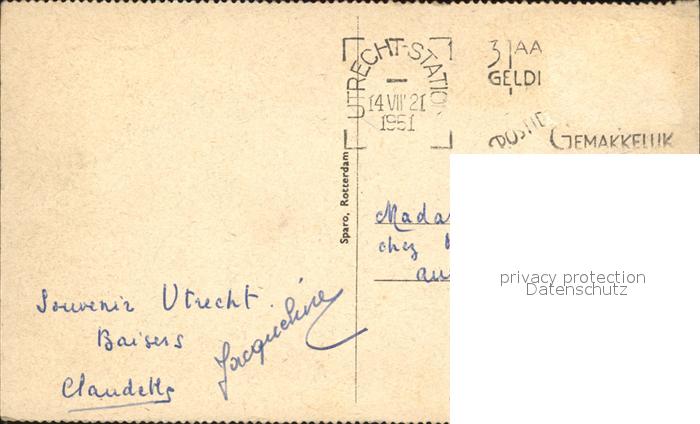 UTRECHT-STATION
14 VII 21
1951
3 JAA
GELDI
POSTGI
GEMAKKELIJK
Sparo, Rotterdam
Mada
chez
au
privacy protection
Datenschutz
Souvenir Utrecht.
Baisers
Jacqueline
Claudette